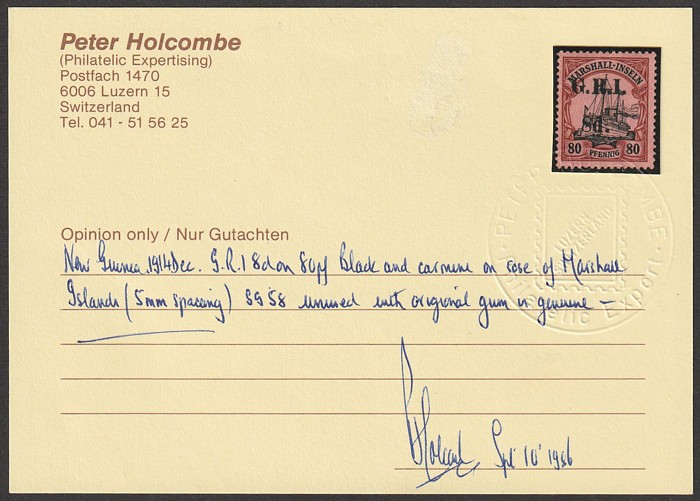 Peter Holcombe
(Philatelic Expertising)
Postfach 1470
6006 Luzern 15
Switzerland
Tel. 041 - 51 56 25
MARSHALL-INSELN
G.R.I.
8d.
80 PFENNIG 80
Opinion only / Nur Gutachten
New Guinea, 1914 Dec. G.R.I 8d on 80pf black and carmine on rose of Marshall
Islands (5mm spacing) SG58 unused with original gum is genuine —
PETER HOLCOMBE
Philatelic Expert
LUZERN
SWITZERLAND
PHolcombe Spt 10' 1986